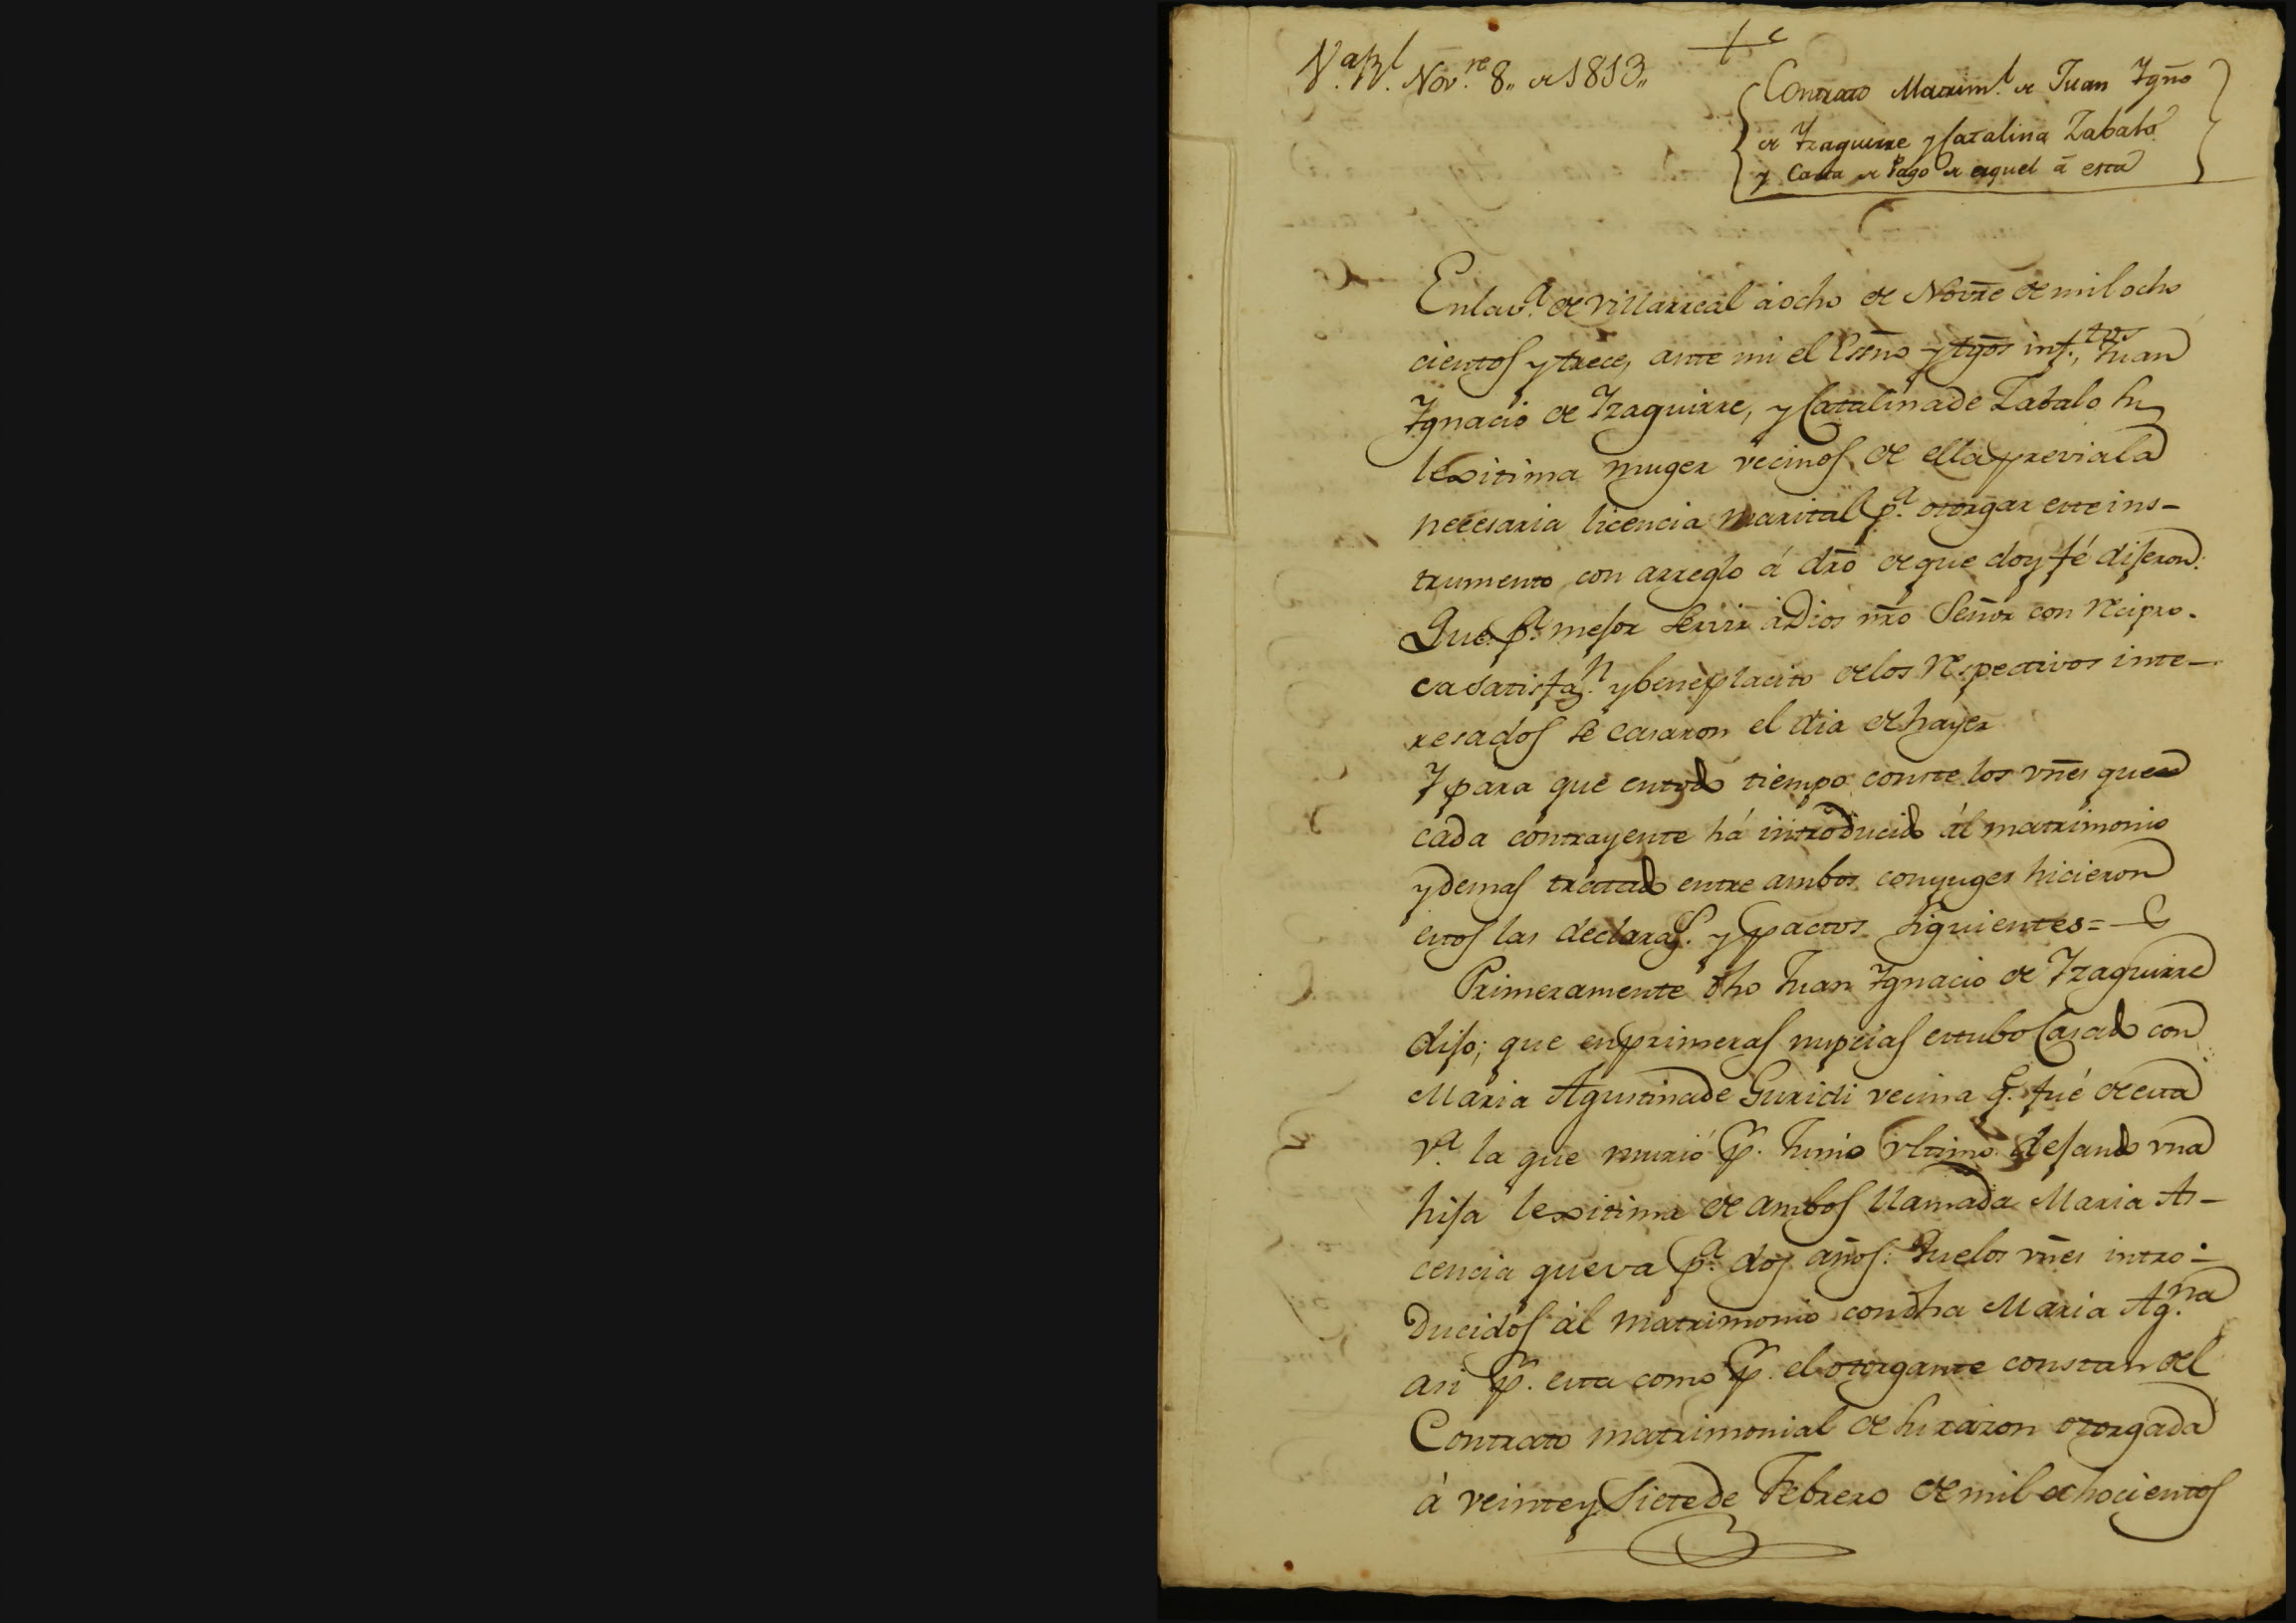 V.ª R.l Nov.re 8,, de 1813,,
Contrato Matrim.l de Juan Ygño
de Yzaguirre y Catalina Zabalo
y Carta de Pago de aquel á esta
En la v.ª de Villarreal á ocho de Novre de mil ocho
cientos y trece, ante mi el Essño y tgõs inf.tos, Juan
Ygnacio de Yzaguirre, y Catalina de Zabalo su
lexitima muger vecinos de ella previa la
necesaria licencia marital p.ª otorgar este ins-
trumento con arreglo á dro de que doy fé dijeron:
Que p.ª mejor servir á Dios nro Señor con recipro-
ca satisfaz.n y beneplacito de los respectivos inte-
resados se casaron el dia de háyer
Y para que en todo tiempo conste los vnes que
cada contrayente há introducido ál matrimonio
y demas tratado entre ambos conyuges hicieron
estos las declaraz.s y pactos siguientes=
Primeramente dho Juan Ygnacio de Yzaguirre
dijo; que en primeras nupcias estubo Casado con
Maria Agustina de Guridi vecina q.e fué de esta
V.ª la que murió p.r Junio vltimo dejando vna
hija lexitima de ambos llamada Maria As-
cencia que va p.ª dos años: Que los vnes intro-
ducidos ál matrimonio con dha Maria Ag.na
asi p.r esta como p.r el otorgante constan del
Contrato matrimonial de su razon otorgada
á veinte y Siete de Febrero de mil ochocientos